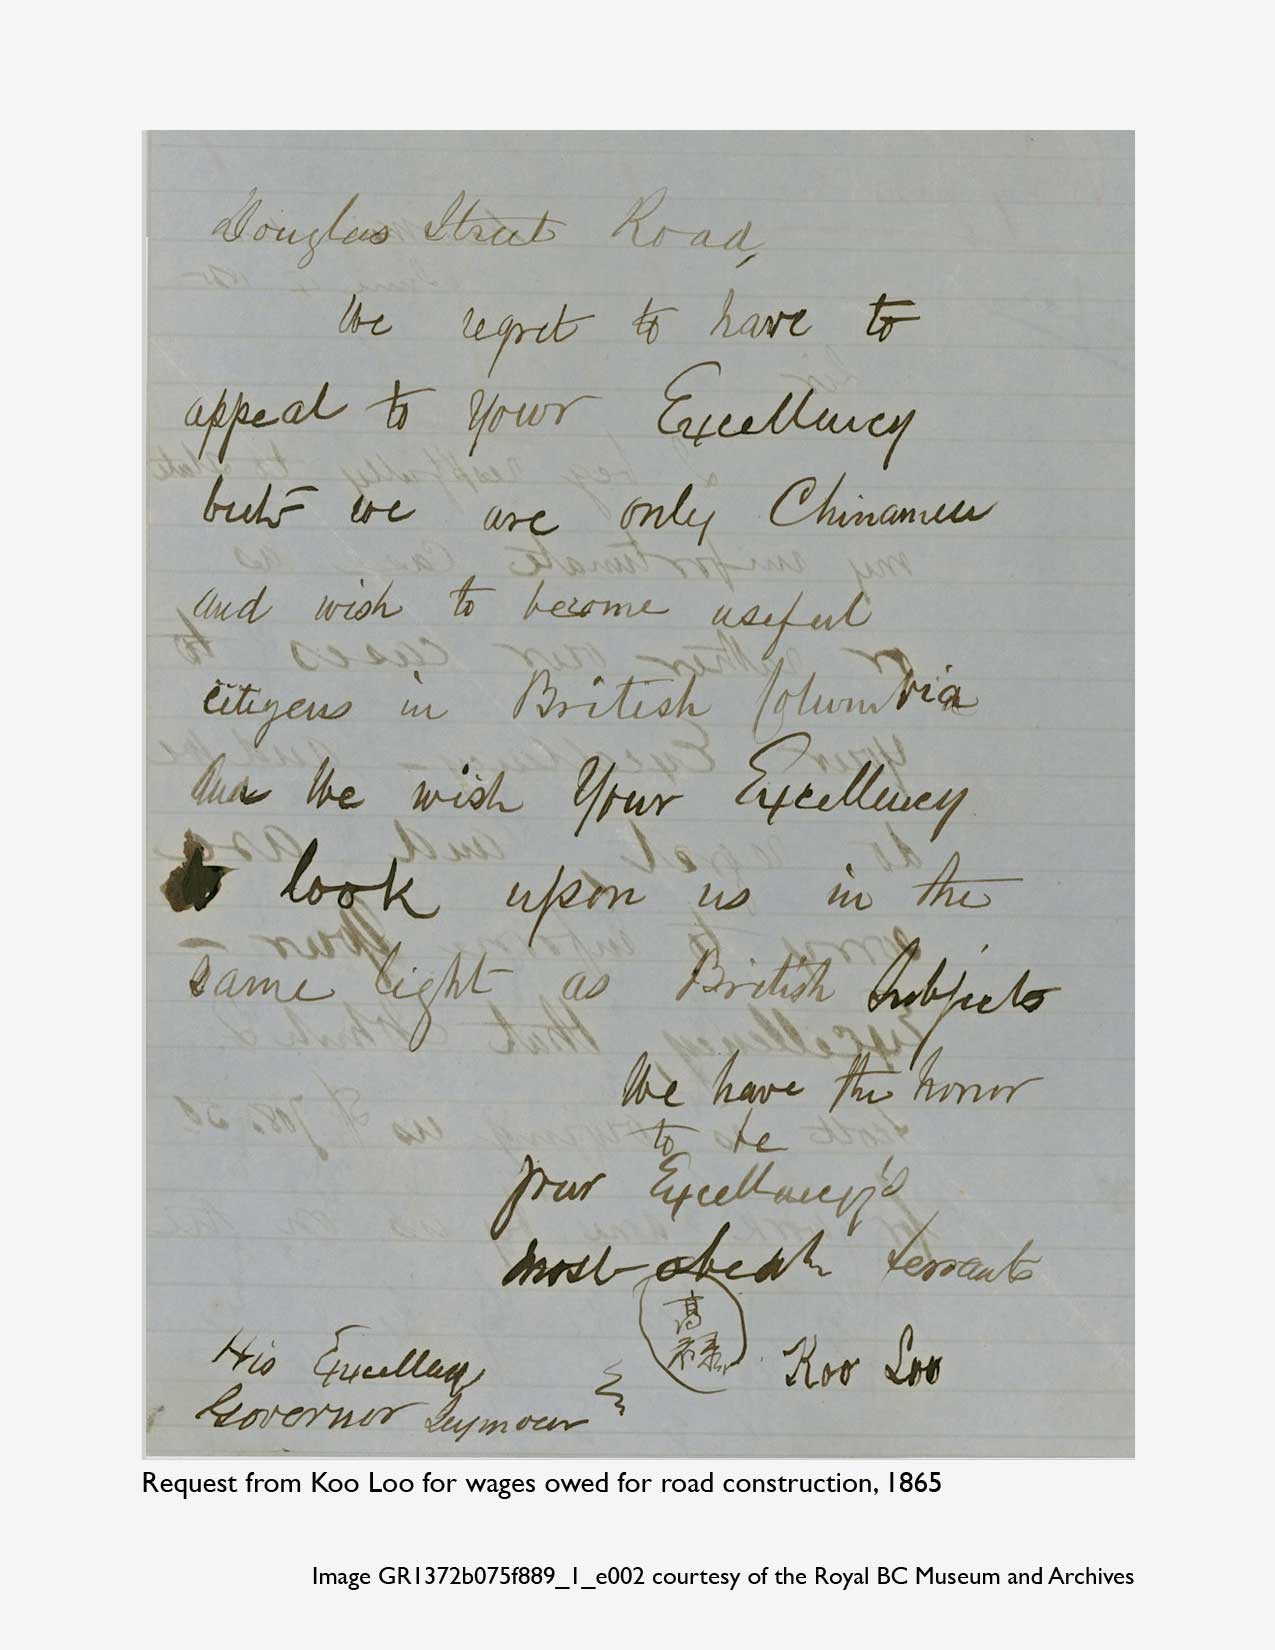 Douglas Street Road,
We regret to have to
appeal to Your Excellency
but we are only Chinamen
and wish to become useful
citizens in British Columbia
And We wish Your Excellency
to look upon us in the
same light as British Subjects
We have the honor
to be
your Excellency's
most obedt servants
高
禄
Koo Loo
His Excellency
Governor Seymour
Request from Koo Loo for wages owed for road construction, 1865
Image GR1372b075f889_1_e002 courtesy of the Royal BC Museum and Archives